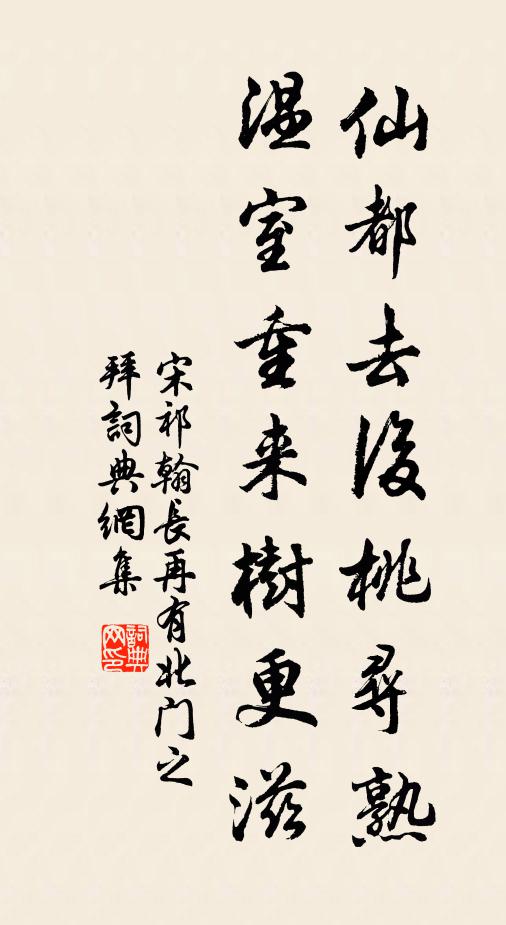 仙都去後桃尋熟
温室重来樹更滋
宋祁翰長再有北门之
拜詞典網集
詞典
网印